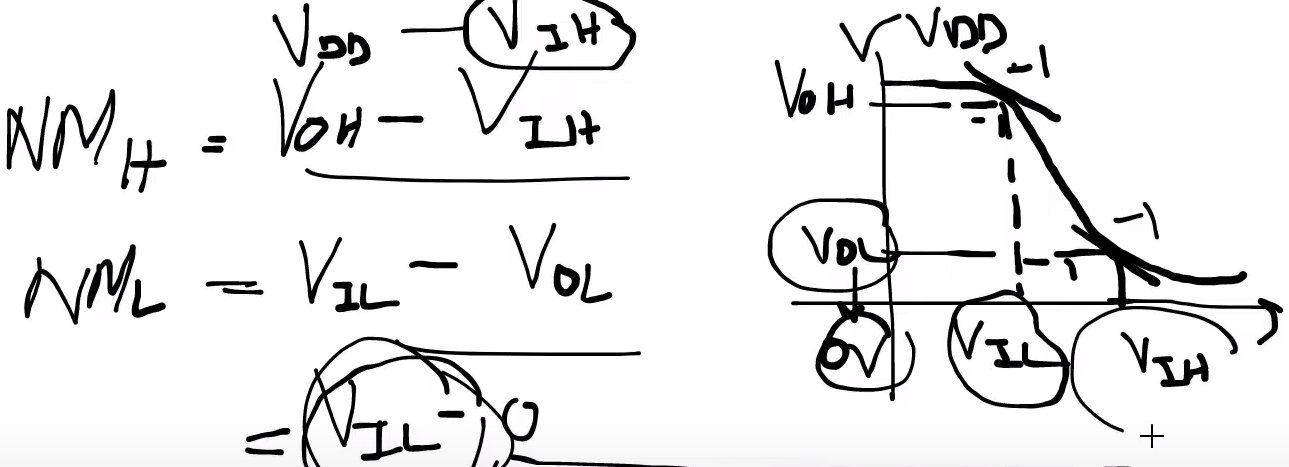 V_DD - V_IH
NM_H = V_OH - V_IH
NM_L = V_IL - V_OL
= V_IL - 0
V VDD
-1
V_OH
-1
V_OL
0V V_IL V_IH